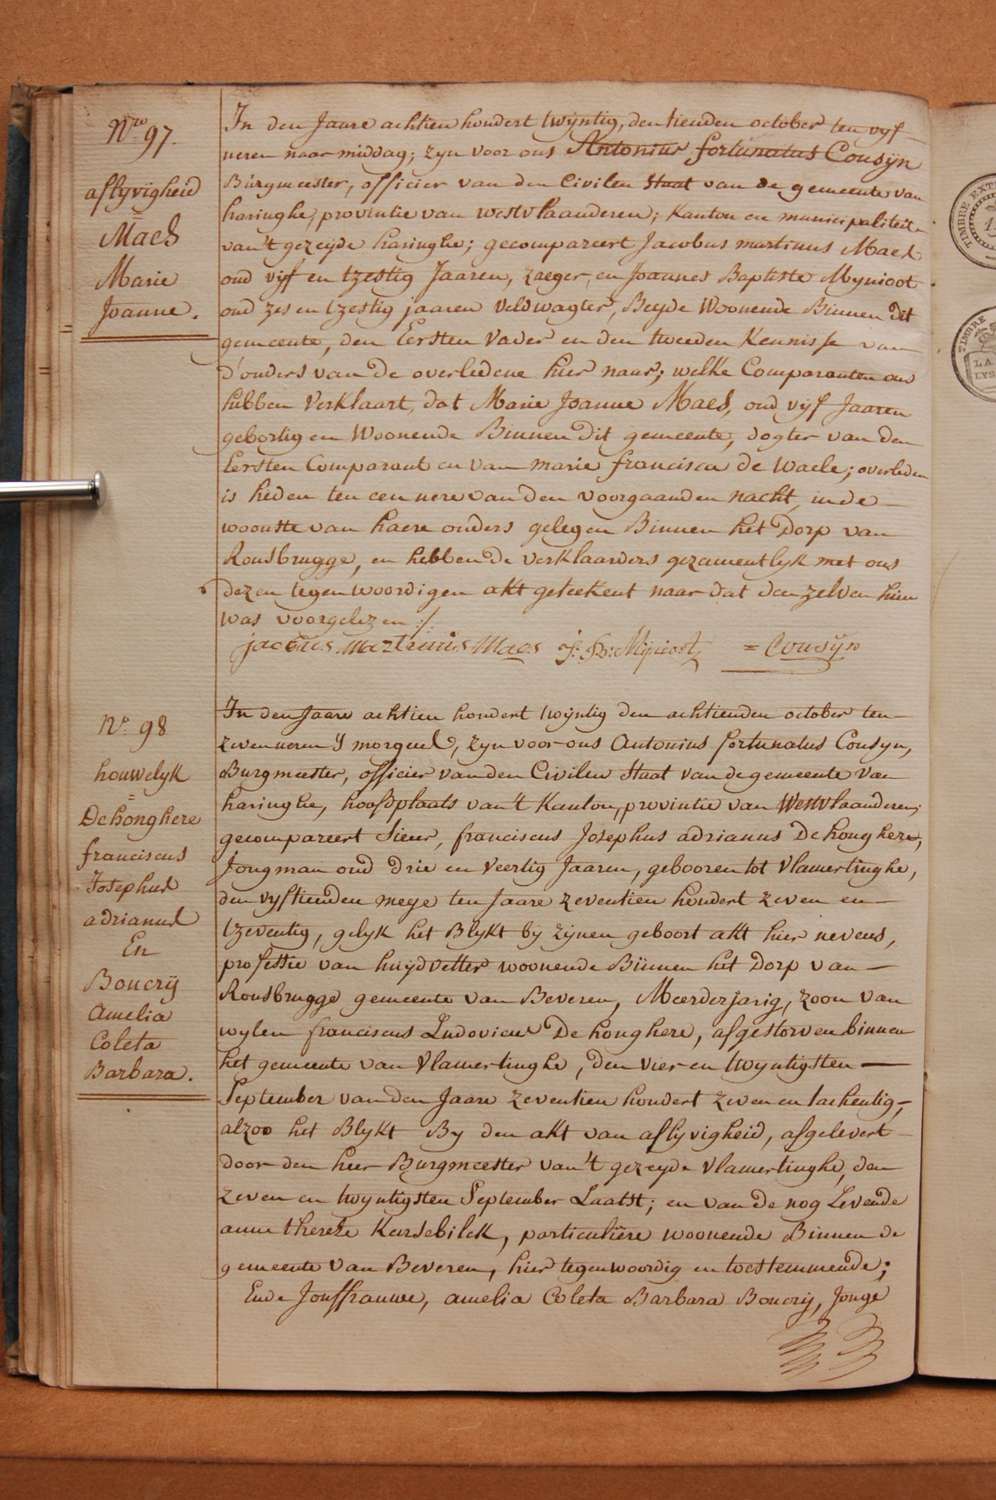 Nro 97.
aflyvigheid
Maes
Marie
Joanne.
In den Jaare achtien hondert twijntig, den tienden october ten vijf
ueren naar middag; zyn voor ons Antonius fortunatus Cousÿn
Burgmeester, officier van den Civilen Staat van de gemeente van
haringhe, provintie van westvlaanderen; Kanton en municipaliteit
van't gezeyde haringhe; gecompareert Jacobus martinus Maes
oud vijf en tzestig Jaaren, zaeger, en Joannes Baptiste Mynioot
oud zes en tzestig jaaren veldwagter, Beyde Woonende Binnen dit
gemeente, den Eersten Vader en den tweeden Kennisse van
d'ouders van de overledene hier naar; welke Comparanten ons
hebben Verklaart, dat Marie Joanne Maes, oud vijf Jaaren
gebortig en Woonende Binnen dit gemeente, dogter van den
Eersten Comparant en van marie francisca de Waele; overleden
is heden ten een uere van den voorgaanden nacht, in de
woonste van haere ouders gelegen Binnen het Dorp van
Rousbrugge, en hebben de verklaarders gezamentlyk met ons
dezen tegenwoordigen akt geteekent naar dat den zelven hun
was voorgelezen ./.
jacobus Martinus Maes J: B: Mijnioot = Cousÿn
No. 98
houwelyk
=
Dehonghere
franciscus
Josephus
adrianus
En
Boucrÿ
Amelia
Coleta
Barbara.
In den Jaare achtien hondert twijntig den achtienden october ten
zeven ueren 's morgens, zyn voor ons Antonius fortunatus Cousyn,
Burgmeester, officier van den Civilen Staat van de gemeente van
haringhe, hoofdplaats van't Kanton, provintie van Westvlaanderen;
gecompareert Sieur, franciscus Josephus adrianus Dehonghere,
Jongman oud drie en veertig Jaaren, gebooren tot Vlamertinghe,
den vyftienden meye ten Jaare zeventien hondert zeven en
tzeventig, gelyk het Blykt by zynen geboort akt hier nevens,
professie van huydvetter woonende Binnen het Dorp van
Rousbrugge gemeente van Beveren, Meerderjarig, zoon van
wylen franciscus Ludovicus Dehonghere, afgestorven binnen
het gemeente van Vlamertinghe, den vier en twyntigsten
September van den Jaare zeventien hondert zeven en tachentig,
alzoo het Blykt By den akt van aflyvigheid, afgelevert
door den heer Burgmeester van't gezeyde Vlamertinghe, den
zeven en twyntigsten September Laatst; en van de nog Levende
anne thereze Karsebilck, particuliere woonende Binnen de
gemeente van Beveren, hier tegenwoordig en toestemmende;
Ende Jouffrauwe, amelia Coleta Barbara Boucrÿ, Jonge
TIMBRE EXT
TIMBRE
LA
LYS